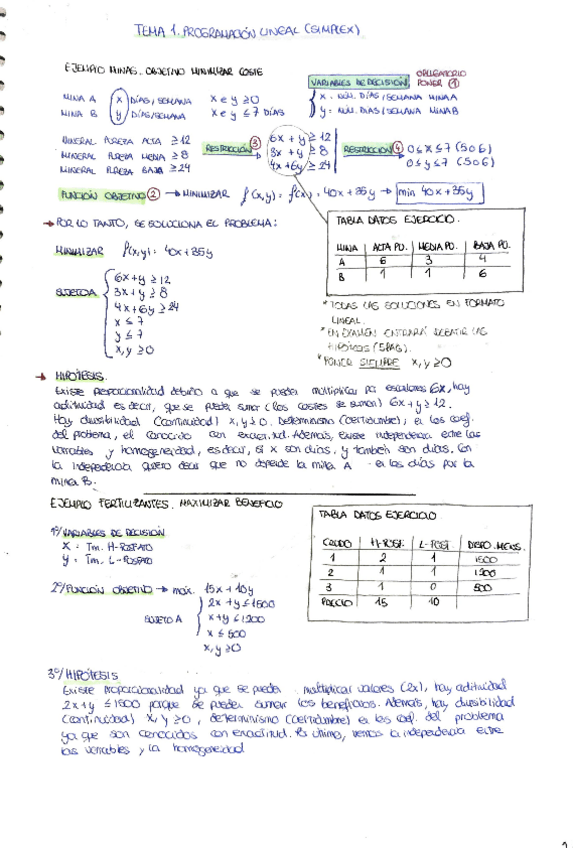 TEMA 1. PROGRAMACIÓN LINEAL (SIMPLEX)
EJEMPLO MINAS. OBJETIVO MINIMIZAR COSTE
VARIABLES DE DECISIÓN OBLIGATORIO PONER 1
MINA A x DÍAS/SEMANA x e y ≥ 0 x = NÚM. DÍAS/SEMANA MINA A
MINA B y DÍAS/SEMANA x e y ≤ 7 DÍAS y = NÚM. DÍAS/SEMANA MINA B
MINERAL PUREZA ALTA ≥ 12 RESTRICCIÓN 3 6x + y ≥ 12 RESTRICCIÓN 4 0 ≤ x ≤ 7 (5 o 6)
MINERAL PUREZA MEDIA ≥ 8 3x + y ≥ 8 0 ≤ y ≤ 7 (5 o 6)
MINERAL PUREZA BAJA ≥ 24 4x + 6y ≥ 24
FUNCIÓN OBJETIVO 2 → MINIMIZAR f(x,y) = 40x + 35y → min 40x + 35y
→ POR LO TANTO, SE SOLUCIONA EL PROBLEMA:
MINIMIZAR f(x,y) = 40x + 35y
SUJETO A
6x + y ≥ 12
3x + y ≥ 8
4x + 6y ≥ 24
x ≤ 7
y ≤ 7
x, y ≥ 0
TABLA DATOS EJERCICIO.
MINA ALTA PU. MEDIA PU. BAJA PU.
A 6 3 4
B 1 1 6
* TODAS LAS SOLUCIONES EN FORMATO
LINEAL.
* EN EXAMEN ENTRARÁ ACERTAR LAS
HIPÓTESIS
* PONER SIEMPRE x, y ≥ 0
→ HIPÓTESIS.
Existe proporcionalidad debido a que se pueden multiplicar por escalares 6x, hay
aditividad es decir, que se puede sumar (los costes se suman) 6x + y ≥ 12.
Hay divisibilidad (continuidad) x, y ≥ 0. Determinismo (certidumbre), en los coef.
del problema, el conocido con . Además, existe independencia entre las
variables y homogeneidad, es decir, si x son días, y también son días. Con
la independencia quiero decir que no depende la mina A en los días por la
mina B.
EJEMPLO FERTILIZANTES. MAXIMIZAR BENEFICIO
1º/ VARIABLES DE DECISIÓN
x = Tm. H-FOSFATO
y = Tm. L-FOSFATO
2º/ FUNCIÓN OBJETIVO → máx. 15x + 10y
SUJETO A
2x + y ≤ 1500
x + y ≤ 1200
x ≤ 500
x, y ≥ 0
TABLA DATOS EJERCICIO
CRUDO H-FOSF. L-FOSF. DISPO. MENS.
1 2 1 1500
2 1 1 1200
3 1 0 500
PRECIO 15 10
3º/ HIPÓTESIS
Existe proporcionalidad ya que se pueden multiplicar valores (2x), hay aditividad
2x + y ≤ 1500 porque se pueden sumar los beneficios. Además, hay divisibilidad
(continuidad) x, y ≥ 0, determinismo (certidumbre) en los coef. del problema
ya que son conocidos con exactitud. Por último, vemos la independencia entre
las variables y la homogeneidad